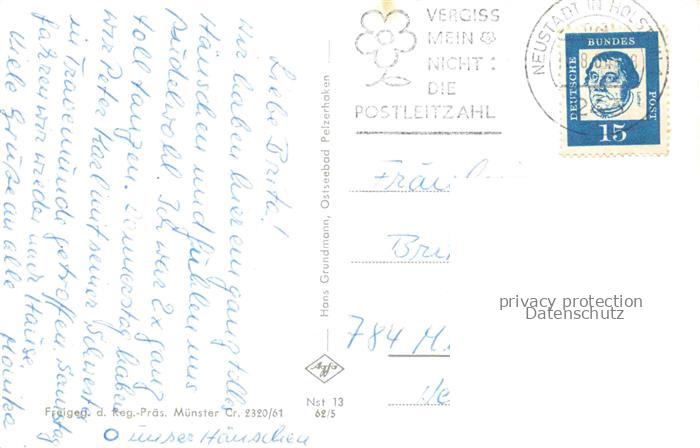 Liebe Brita!
Wir haben hier ein ganz tolles
Häuschen und fühlen uns
pudelwohl. Ich war 2x ganz
toll tanzen. Donnerstag haben
wir Peter Karl mit seiner Schwester
in Travemünde getroffen. Samstag
fahren wir wieder nach Hause.
Viele Grüße an alle
Monika
O unser Häuschen
Freigeg. d. Reg.-Präs. Münster Cr. 2320/61
Hans Grundmann, Ostseebad Pelzerhaken
Agfa
Nst 13
62/5
VERGISS
MEIN
NICHT:
DIE
POSTLEITZAHL
NEUSTADT IN HOLST
DEUTSCHE BUNDES POST
Luther
15
Fräulein
Bri
784 M
privacy protection
Datenschutz